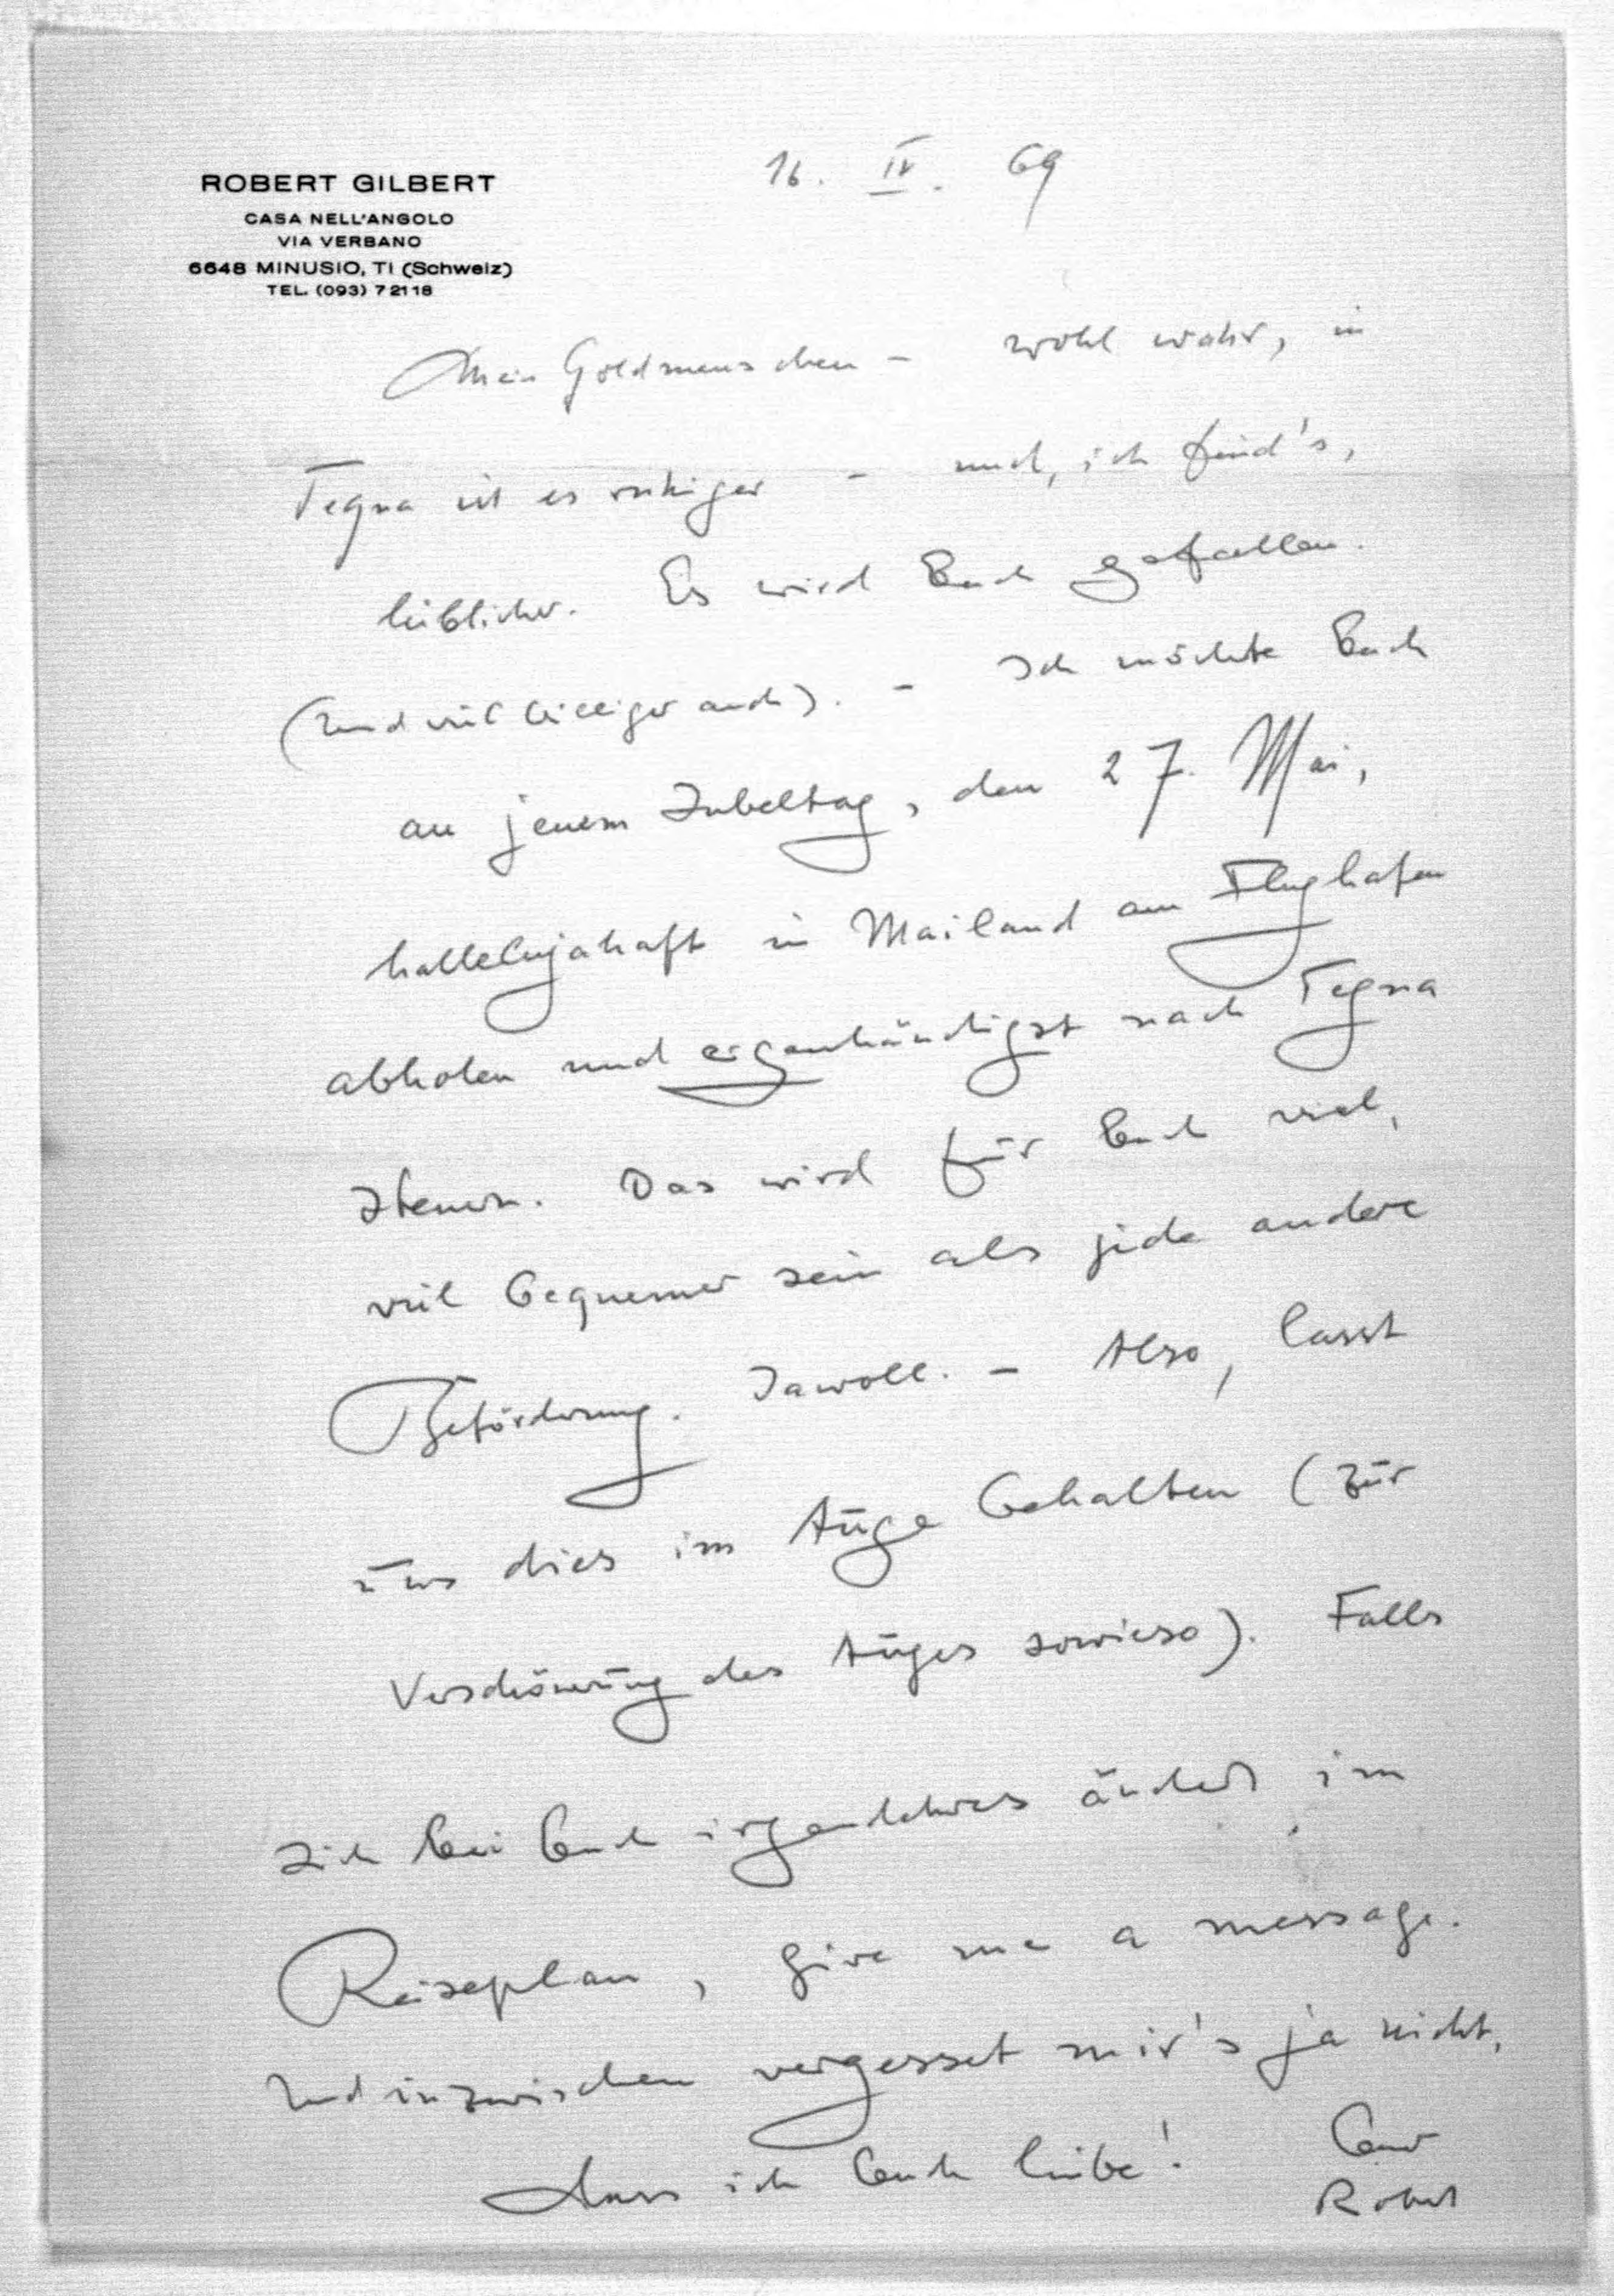 ROBERT GILBERT
CASA NELL'ANGOLO
VIA VERBANO
6648 MINUSIO, TI (Schweiz)
TEL. (093) 7 21 18
16. IV. 69
Mein Goldmenschen – wohl wahr, in
Tegna ist es ruhiger – und, ich find's,
lieblicher. Es wird Euch gefallen.
(Und viel billiger auch). – Ich möchte Euch
an jenem Jubeltag, den 27. Mai,
hallelujahaft in Mailand am Flughafen
abholen und eigenhändigst nach Tegna
steuern. Das wird für Euch viel,
viel bequemer sein als jede andere
Beförderung. Jawoll. – Also, lasst
uns dies im Auge behalten (zur
Verschönerung des Auges sowieso). Falls
sich bei Euch irgendetwas ändert im
Reiseplan, give me a message.
Und inzwischen vergesset mir's ja nicht,
dass ich Euch liebe!
Euer
Robert